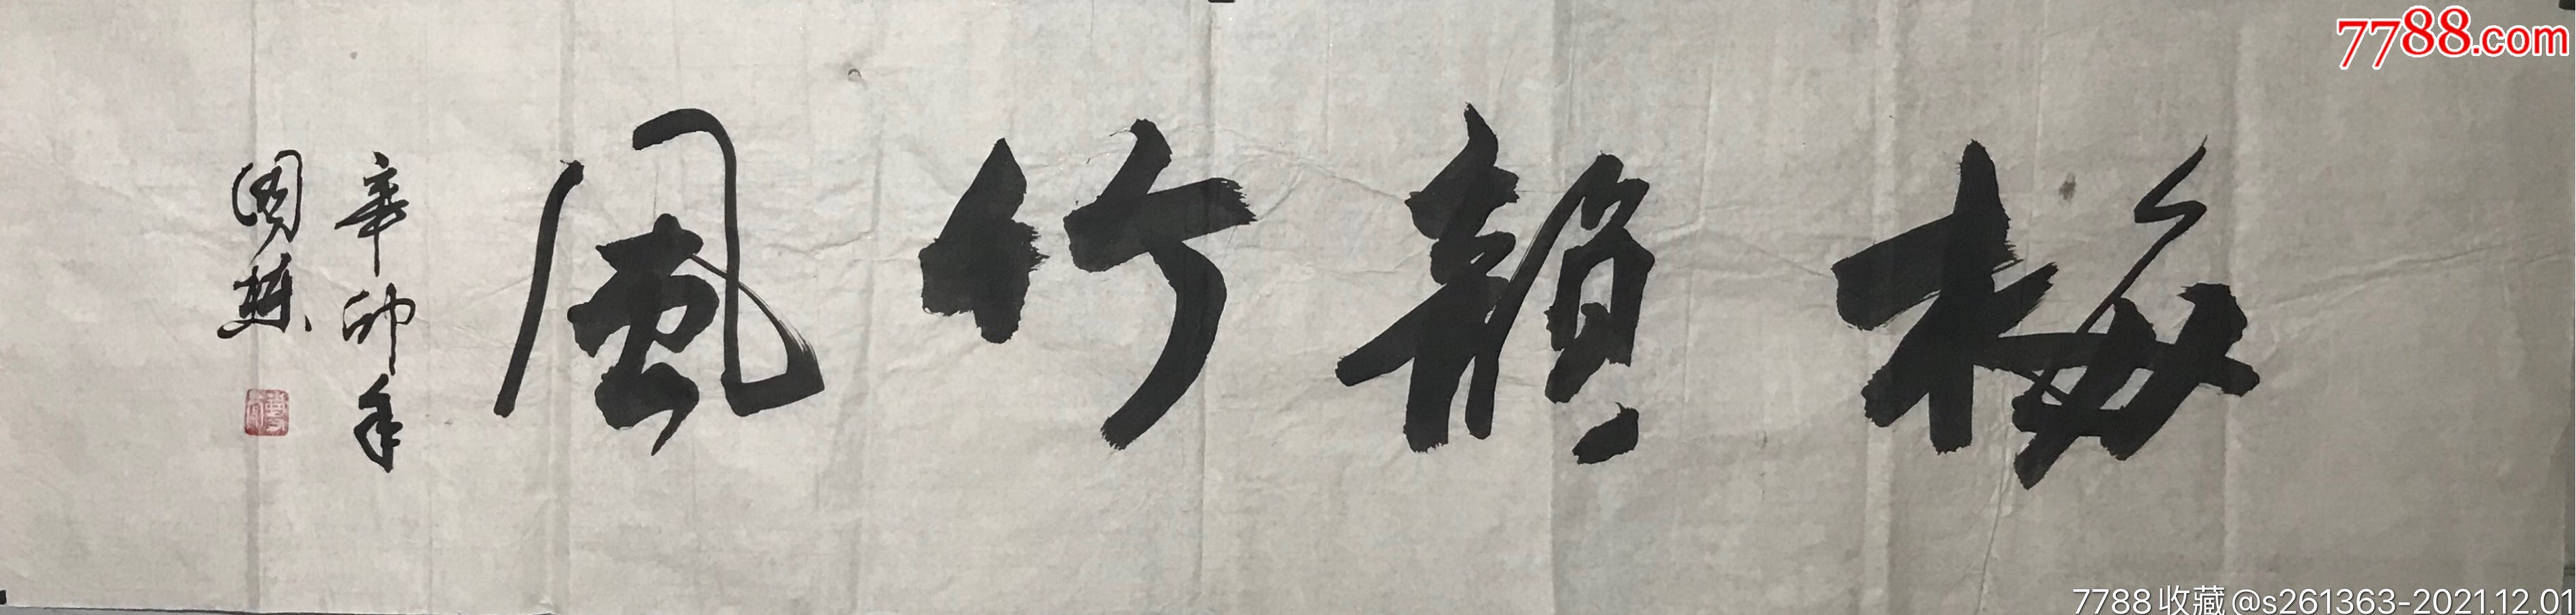 梅韻竹風
辛卯年
國棟
7788.com
7788收藏@s261363-2021.12.01